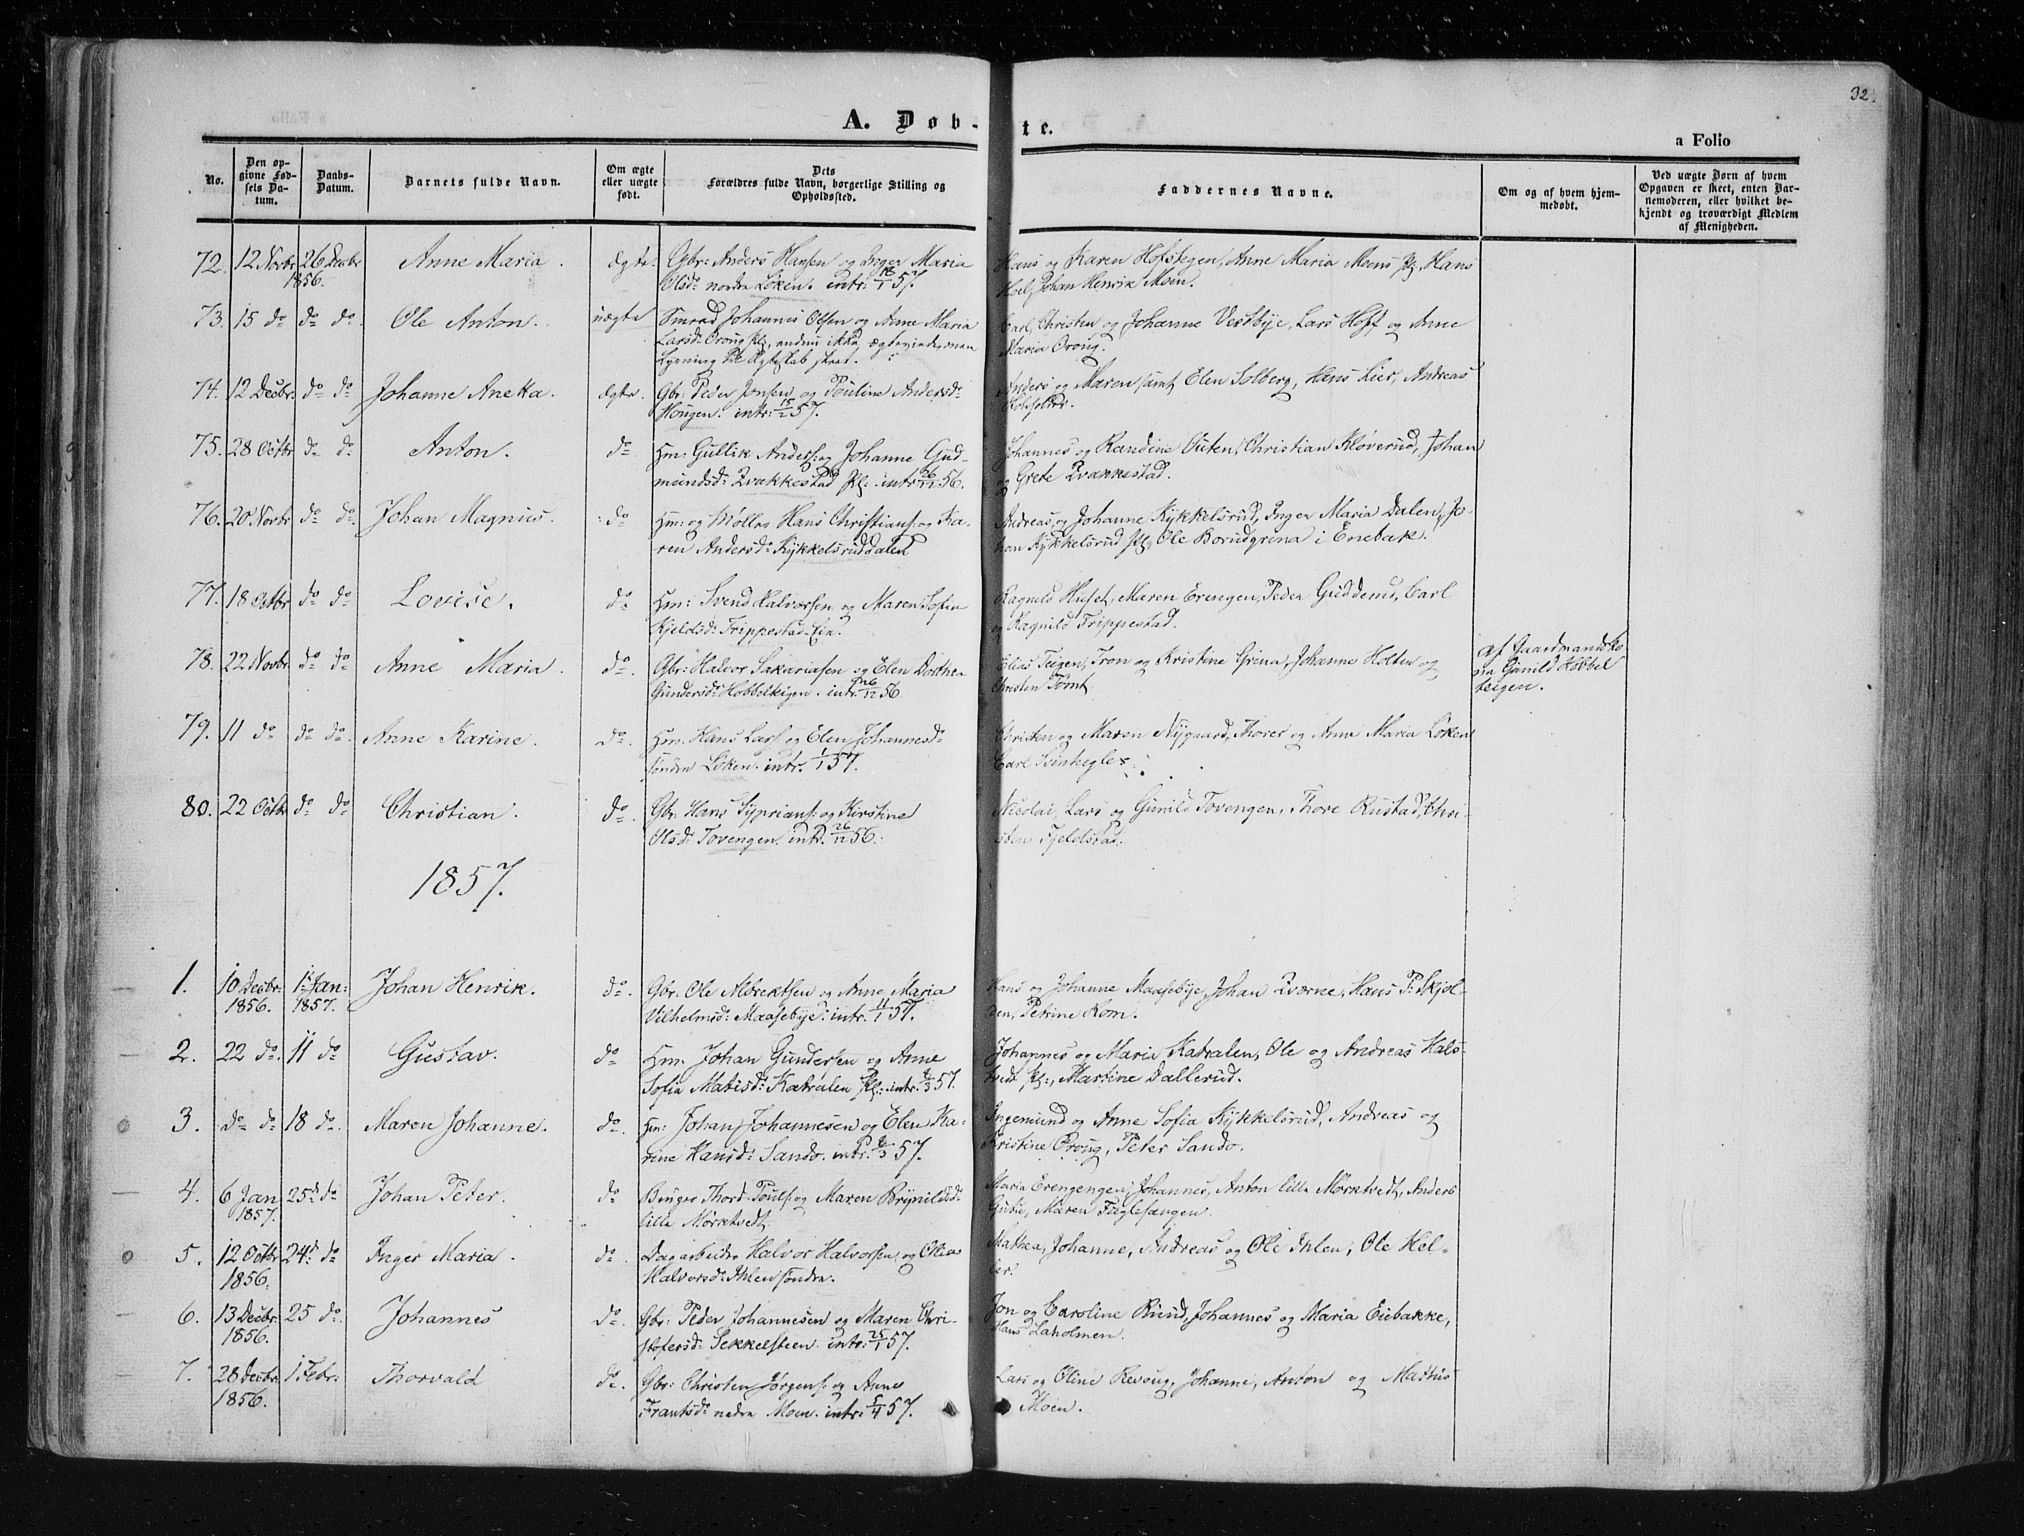 32.
A. Døb-te.
a Folio
No.
Den opgivne Fødsels Datum.
Daabs-Datum.
Barnets fulde Navn.
Om ægte eller uægte født.
Dets Forældres fulde Navn, borgerlige Stilling og Opholdssted.
Faddernes Navne.
Om og af hvem hjemmedøbt.
Ved uægte Børn af hvem Opgaven er skeet, enten Barnemoderen, eller hvilket bekjendt og troværdigt Medlem af Menigheden.
72. 12 Novbr 26 Decbr Anne Maria. ægte. Gbr: Anders Hansen og Inger Maria Hans og Karen Hofstegen, Anne Maria Moens pl, Hans
1856. Olsd: nordre Løken. intr: 18/1 57. Hoel, Johan Henrik Moen.
73. 15 do do do. Ole Anton. uægte Johannes Olsen og Anne Maria Carl, Christen og Johanne Vestbye, Lars Hoff og Anne
Larsd: Oroug pl, endnu ikke Maria Oroug.
Lysning til Ægteskab skeet.
74. 12 Decbr. do do Johanne Aneta. ægte. Gbr: Peder Jonsen og Pouline Andersd: Anders og Maren samt Elen Solberg, Hans Lier, Andreas
Hougen. intr: 15/2 57.
75. 28 Octbr do do. Anton. do Hm: Gullik Anders: og Johanne Gud- Johannes og Randine Outen, Christian Kløverud, Johan
mundsd: Kvakkestad pl: intr 26/12 56. og Grete Kvakkestad.
76. 20 Novbr do do. Johan Magnus. do Hm: og Møller Hans Christians: og Ka- Andreas og Johanne Kykkelsrud, Inger Maria Dalen, Jo-
ren Andersd: Kykkelsruddalen han Kykkelsrud pl, Ole Borudgrina i Enebak.
77. 18 Octbr do do Lovise. do Hm: Svend Halvorsen og Maren Sofia Ragnild Huset, Maren Erengen, Peder Guddems, Carl
Kjeldsd: Trippestad-Ein. og Ragnild Trippestad.
78. 22 Novbr. do do Anne Maria. do. Gbr: Halvor Sakariasen og Elen Dorthea Elias Teigen, Tron og Kristine Grina, Johanne Holten og af Gaardmandsko-
Gundersd: Hobbelteigen. intr: 26/12 56 Christen Tomt. na Gunild Hobbel
teigen.
79. 11 do do do. Anne Karine. do. Hm. Hans Lars: og Elen Johannesd: Christen og Maren Nygaard, Thorer og Anne Maria Løken
søndre Løken. intr. 1/1 57. Carl
80. 22 Octbr do do Christian. do. Gbr. Hans Syprians: og Kirstine Nicolai, Lars og Gunild Tovengen, Thore Rustad, Chri-
Olsd: Tovengen. intr. 26/12 56. sten Fjeldstad.
1857.
1. 10 Decbr. 1 Jan: Johan Henrik. do. Gbr. Ole Albrektsen og Anne Maria Hans og Johanne Maasebye, Johan Kværne, Hans P. Skjol-
1856. 1857. Vilhelmsd: Maasebye. intr. 11/1 57. den, Petrine Rom.
2. 22 do. 11 do Gustav. do Hm. Johan Gundersen og Anne Johannes og Maria Katralen, Ole og Andreas Hals-
Sofia Matisd: Katralen pl: intr. 8/3 57. tvedt pl:, Martine Dallerud.
3. do do 18 do. Maren Johanne. do. Hm: Johan Johannesen og Elen Ka- Ingemund og Anne Sofia Kykkelsrud, Andreas og
rine Hansd: Sando. intr. 8/3 57. Kristine Oroug, Peter Sando.
4. 6 Jan 25d do Johan Peter. do Thord Pouls: og Maren Brynilds: Maria Erengengen, Johannes, Anton lille Mørktvedt, Anders
1857. lille Mørktvedt. Maren Fuglesangen.
5. 12 Octbr 24d do Inger Maria. do. Dagarbeider Halvor Halvorsen og Olia Mathea, Johanne, Andreas og Ole Ihlen, Ole Hel-
1856. Halvorsd: Ihlen søndre. ler.
6. 13 Decbr. 25 do. Johannes do. Gbr: Peder Johannesen og Maren Chri- Jon og Caroline Ruud, Johannes og Maria Eiebakke,
1856. stofersd: Sekkelsteen. intr: 25/1 57. Hans Laholmen.
7. 28 Decbr. 1 Febr: Thorvald do. Gbr: Christen Jørgens: og Anne Lars og Oline Revoug, Johanne, Anton og Mathis
1856. Frantsd: nedre Moen. intr: 5/4 57. Moen.